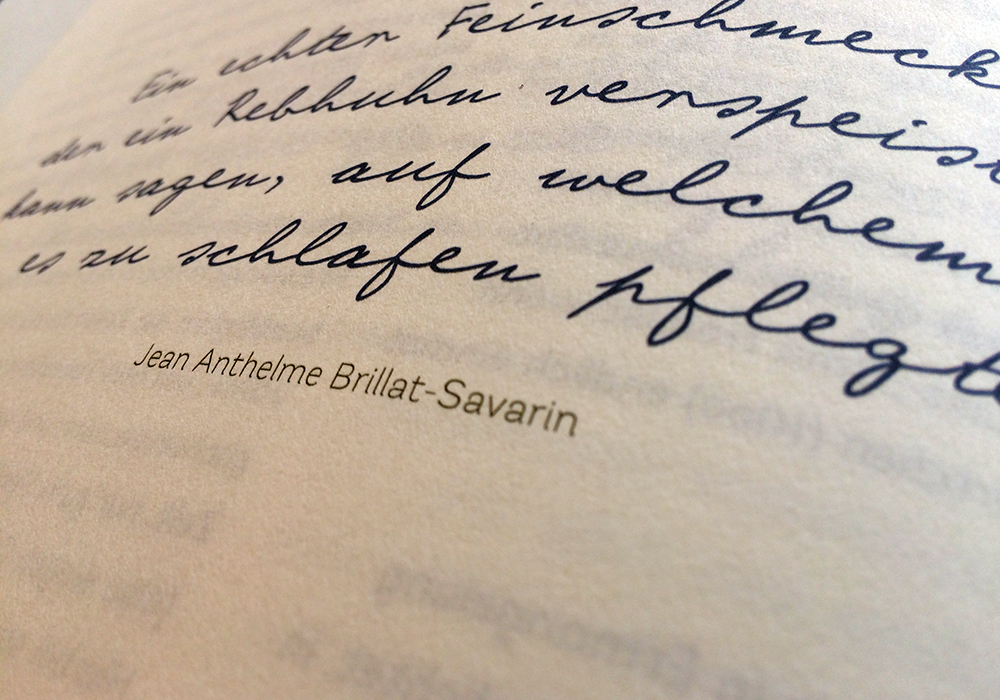 Ein echter Feinschmeck
der ein Rebhuhn verspeis
kann sagen, auf welchem
es zu schlafen pflegt
Jean Anthelme Brillat-Savarin